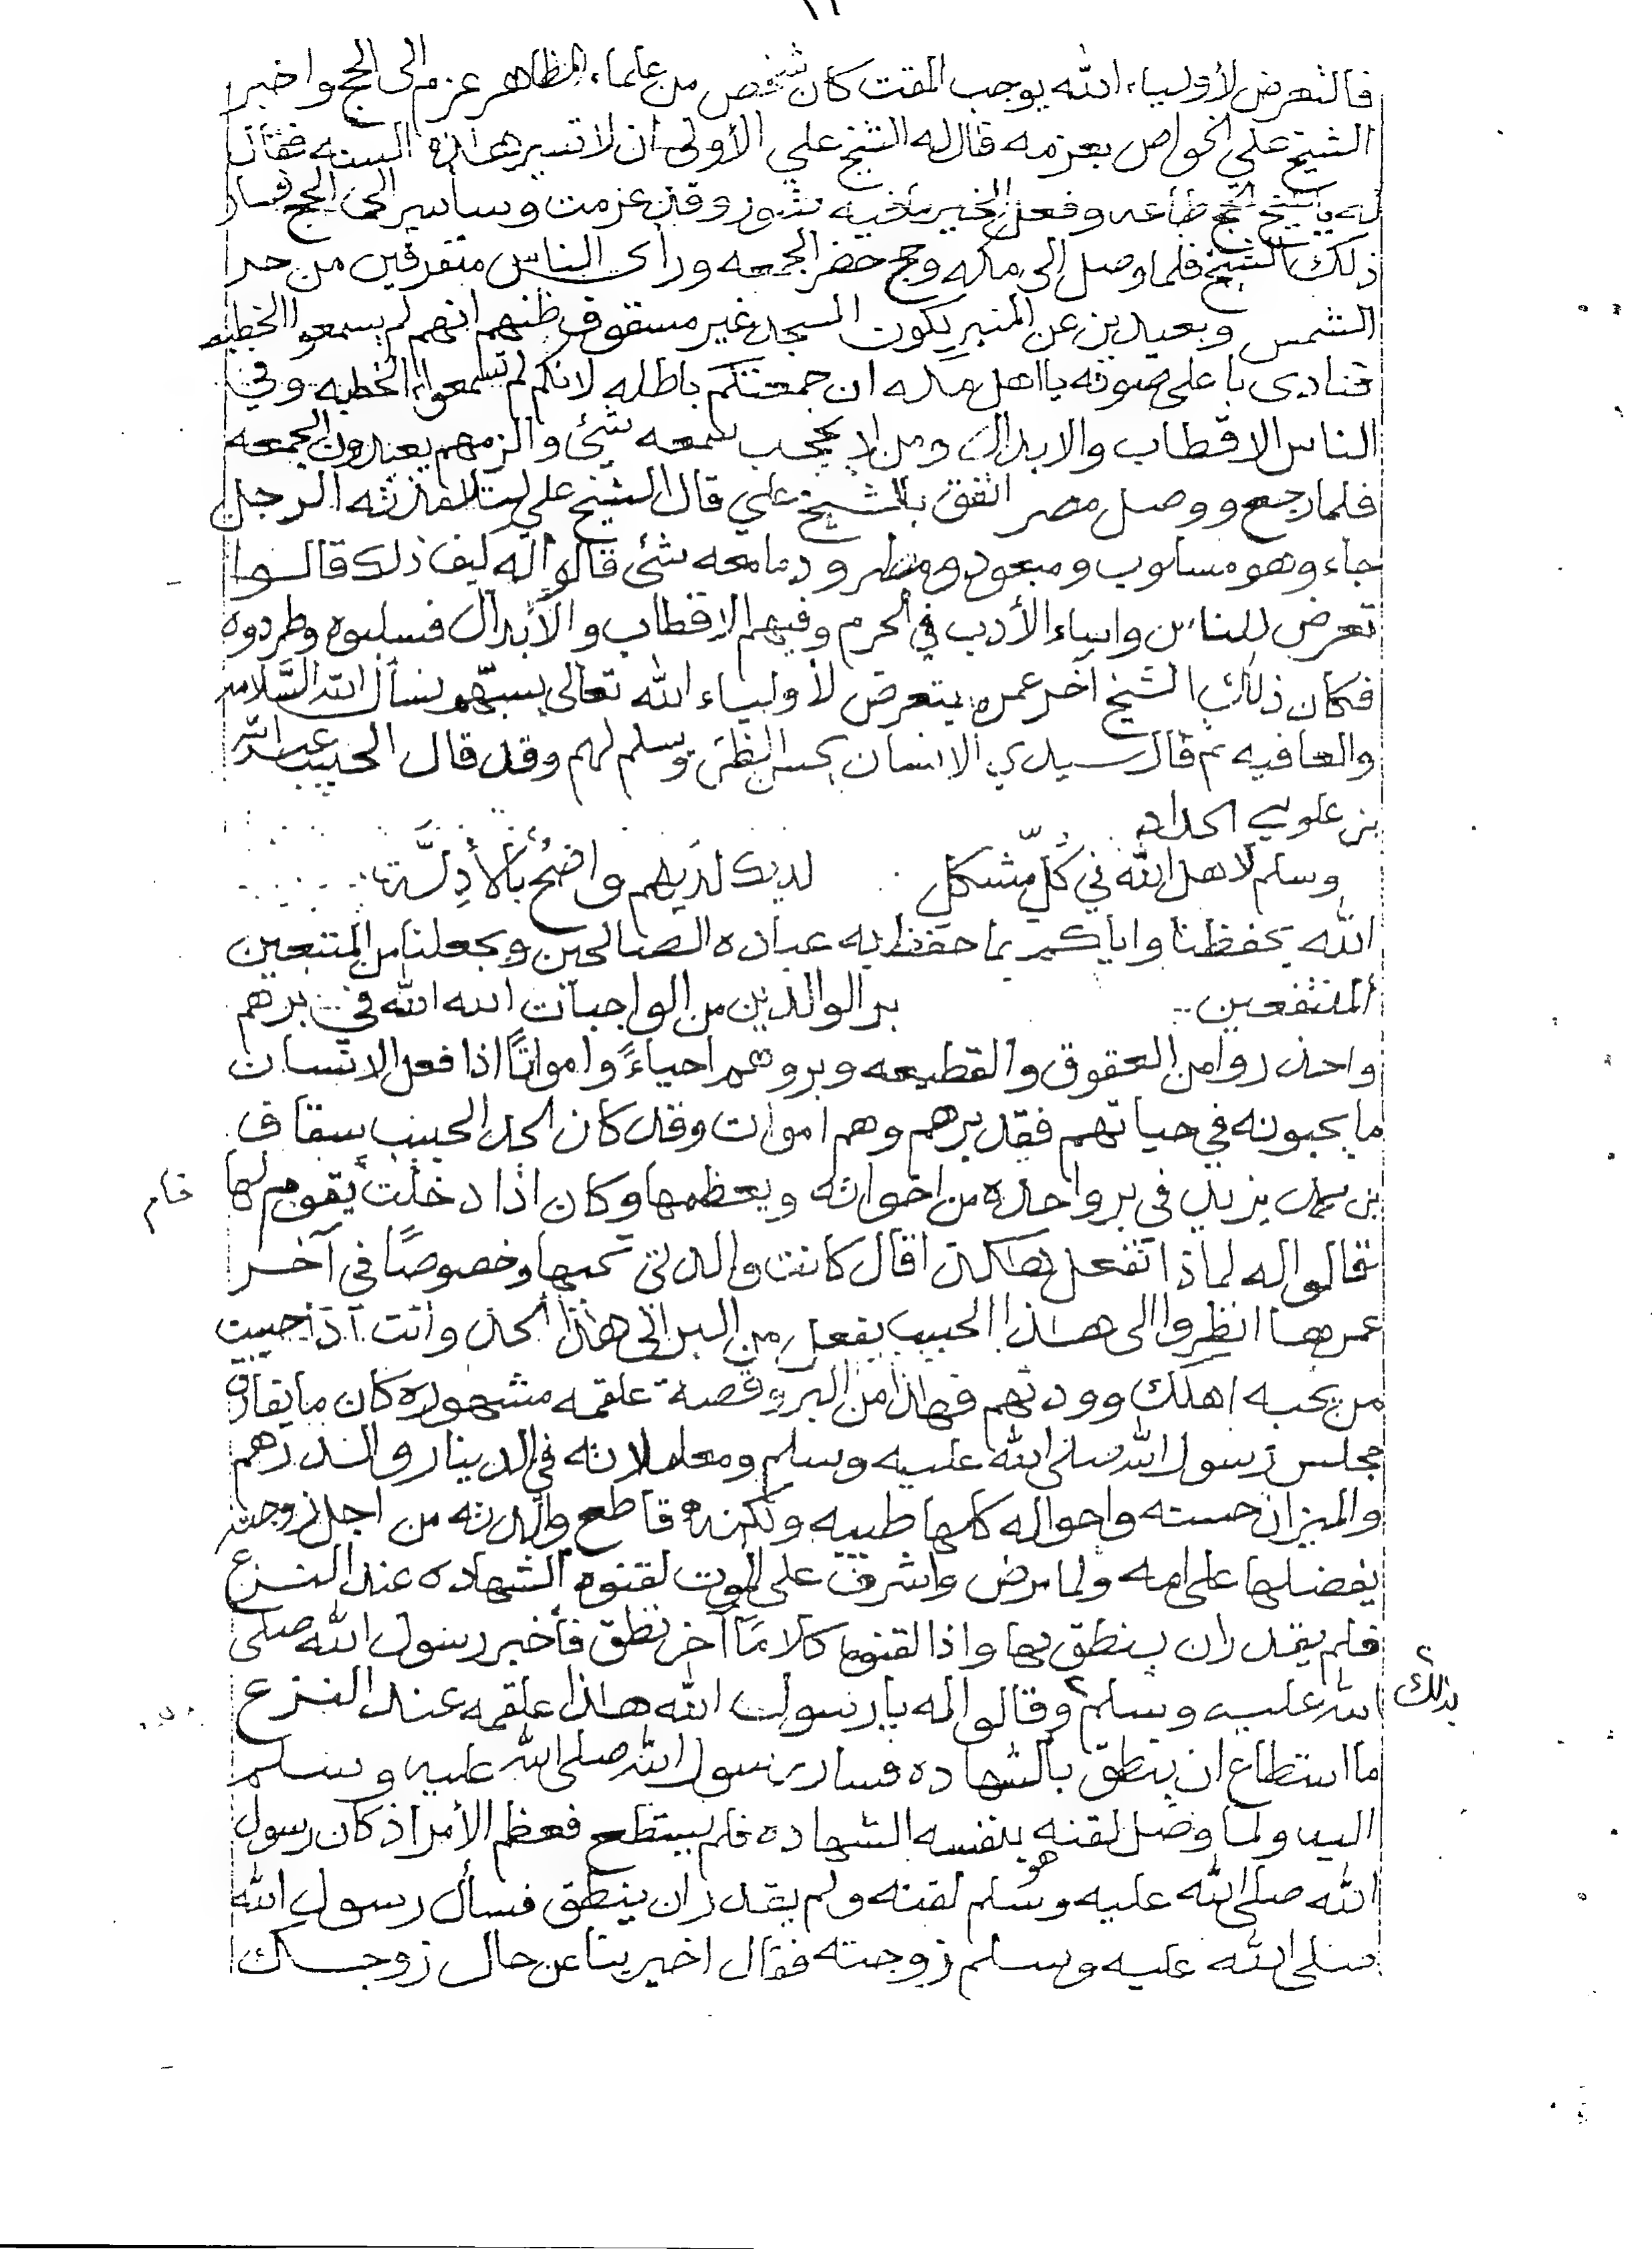 ١٦
فالتعرض لأولياء الله يوجب المقت كان شخص من علماء الظاهر عزم الى الحج واخبر
الشيخ علي الخواص بعزمه قال له الشيخ علي الأولى ان لا تسير هذه السنه فقال
له يا شيخ الحج طاعه وفعل الخير مافيه شور وقد عزمت وسأسير الى الحج فسار
ذلك الشيخ فلما وصل الى مكه وحج حضر الجمعه ورأى الناس متفرقين من حر
الشمس وبعيدين عن المنبر يكون المسجد غير مسقوف ظنهم انهم لم يسمعوا الخطبه
فنادى باعلى صوته يا اهل مكه ان جمعتكم باطله لانكم لم تسمعوا الخطبه وفي
الناس الاقطاب والابدال ومن لا يحجب سمعه شئ والزمهم يعيدون الجمعه
فلما رجع ووصل مصر اتفق بالشيخ علي قال الشيخ علي لتلامذته الرجل
جاء وهو مسلوب ومبعود ومطرود مامعه شئ قالوا له كيف ذلك قالوا
تعرض للناس واساء الأدب في الحرم وفيهم الاقطاب والأبدال فسلبوه وطردوه
فكان ذلك الشيخ آخر عمره يتعرض لأولياء الله تعالى يسبهم نسأل الله السلامه
والعافيه ثم قال سيدي الانسان يحسن الظن ويسلم لهم وقد قال الحبيب عبدالله
بن علوي الحداد
وسلم لاهل الله في كل مشكل لديك لديهم واضح بالأدلة
الله يحفظنا واياكم بما حفظ به عباده الصالحين ويجعلنا من المتبعين
المنتفعين .. بر الوالدين من الواجبات الله الله في برهم
واحذروا من العقوق والقطيعه وبروهم احياءً وامواتاً اذا فعل الانسان
ما يحبونه في حياتهم فقد برهم وهم اموات وقد كان الجد الحبيب سقاف
بن محمد يزيد في بر واحده من اخواته ويعظمها وكان اذا دخلت يقوم لها قام
قالوا له لماذا تفعل هكذا قال كانت والدتي تحبها وخصوصًا في آخر
عمرها انظروا الى هذا الحبيب يفعل من البر الى هذا الحد وأنت اذا حبيت
من يحبه اهلك وودتهم فهذا من البر وقصة علقمه مشهوره كان مايفارق
مجلس رسول الله صلى الله عليه وسلم ومعاملاته في الدينار والدرهم
والميزان حسنه واحواله كلها طيبه ولكنه قاطع والدته من اجل زوجته
يفضلها على امه ولما مرض واشرف على الموت لقنوه الشهاده عند النزع
فلم يقدر ان ينطق بها واذا لقنوه كلامًا آخر نطق فأخبر رسول الله صلى
الله عليه وسلم ٢ وقالوا له يا رسول الله هذا علقمه عند النزع ٢ بذلك
ما استطاع ان ينطق بالشهاده فسار رسول الله صلى الله عليه وسلم
اليه ولما وصل لقنه بنفسه الشهاده فلم يستطع فعظم الأمر اذ كان رسول
الله صلى الله عليه وسلم هو لقنه ولم يقدر ان ينطق فسأل رسول الله
صلى الله عليه وسلم زوجته فقال اخبرينا عن حال زوجك